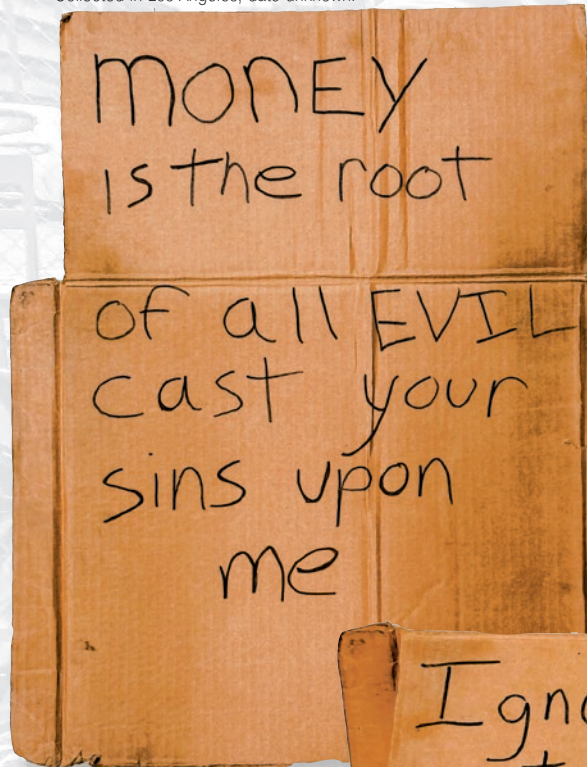 monEy
is the root
of all EVIL
cast your
sins upon
me